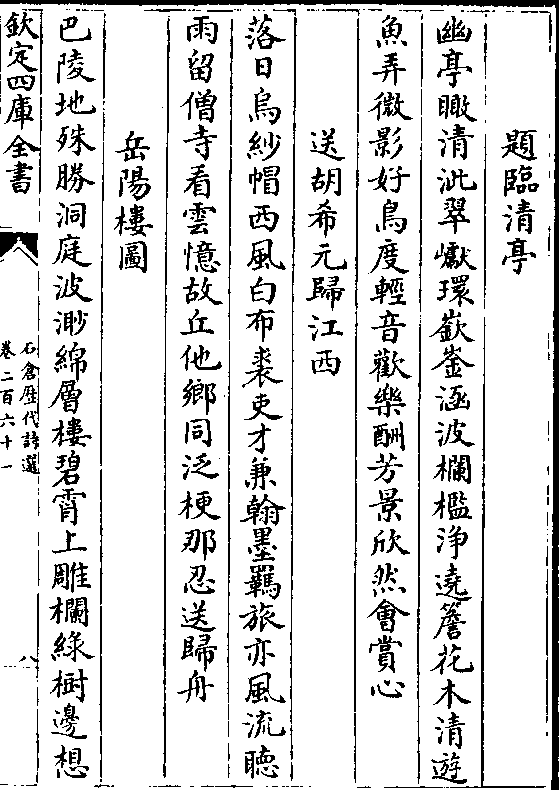 題臨清亭
幽亭瞰清泚翠巘環嶔崟涵波欄檻淨遶簷花木清遊
魚弄微影好鳥度輕音歡樂酬芳景欣然會賞心
送胡希元歸江西
落日烏紗帽西風白布裘吏才兼翰墨羈旅亦風流聽
雨留僧寺看雲憶故丘他鄉同泛梗那忍送歸舟
岳陽樓圖
巴陵地殊勝洞庭波渺綿層樓碧霄上雕欄綠樹邊想
欽定四庫全書
石倉歷代詩選
卷二百六十一
八